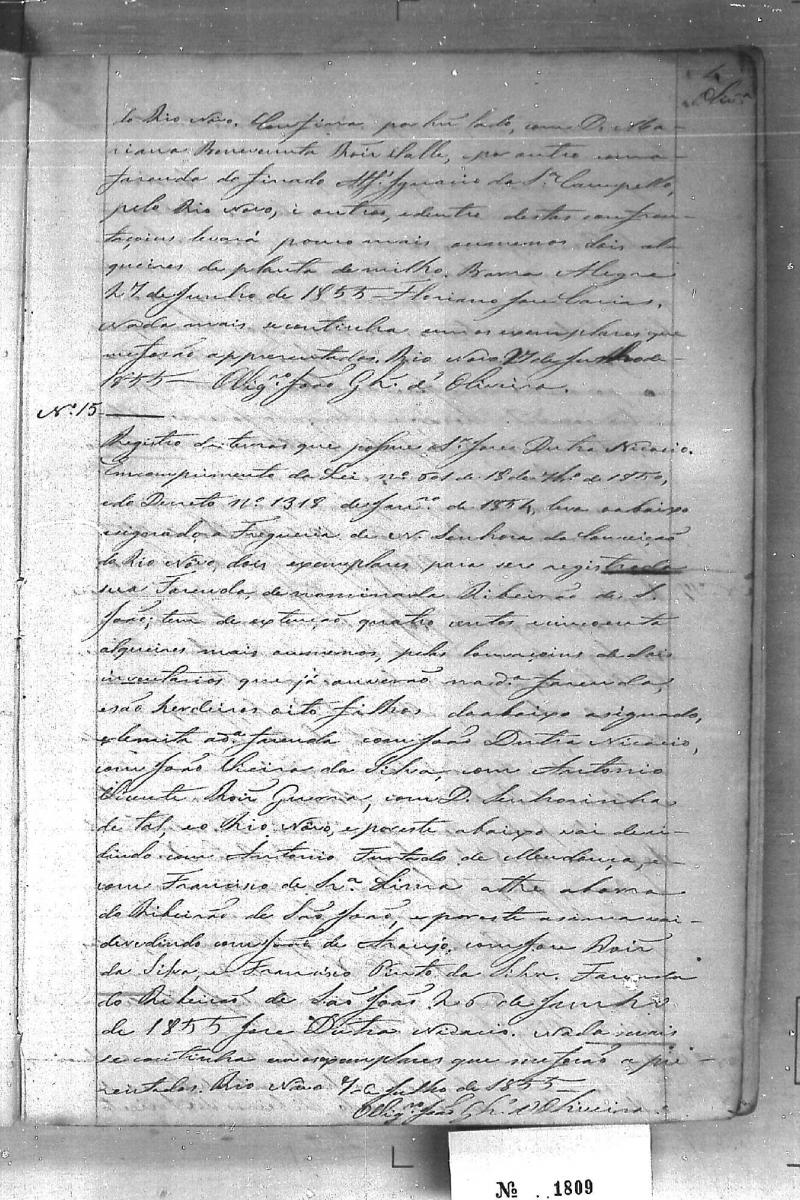 4
Oliv.ª
do Rio Nôvo. Confina por hũ lado, com D. Ma-
riana Benevenuta Roiz Valle, e por outro com a
fazenda do finado Alf.s Ignacio da S.ª Campello,
pelo Rio Novo, e outros, e dentro destas confron-
tações levará pouco mais ou menos dois al-
queires de planta de milho. Barra Alegre
27 de Junho de 1855 - Floriano Jose
Nada mais se continha em os exemplares que
me forão appresentados. Rio Novo 27 de Junho de
1855 - O Vig.ro João Gls. d' Oliveira.
N.º 15
Registro de terras que possue o S.r Jose Dutra Nicacio.
Em comprimento da Lei nº 601 de 18 de 7bro de 1850,
e do Decreto Nº 1318 de Janr.o de 1854, leva o abaixo
asignado a Freguezia de N. Senhora da Conceição
do Rio Nôvo, dois exemplares para ser registrada
sua Fazenda, denominada Ribeirão de S.
João; tem de extenção quatro centos e sincoenta
alqueires mais ou menos, pelas louvações de dois
inventarios que já ouverão na d.ª fazenda,
e são herdeiros oito filhos do abaixo asignado,
e lemita a d.ª fazenda com João Dutra Nicacio,
com João Vieira da Silva, com Antonio
Vicente Roiz Guerra, com D. Senhorinha
de tal, e o Rio Nôvo, e por este abaixo vai devi-
dindo com Antonio Furtado de Mendonça, e
com Francisco de Sz.ª Lima athe a barra
do Ribeirão de São João, e por este asima vai
devedindo com João de Araujo, com Jose Roiz
da Silva, e Francisco Pinto da Silva. Fazenda
do Ribeirão de São João 26 de Junho
de 1855 Jose Dutra Nicacio. Nada mais
se continha em os exemplares que me forão apre-
zentados. Rio Nôvo de Julho de 1855
O Vig.ro João Gls. d'Oliveira.
Nº 1809